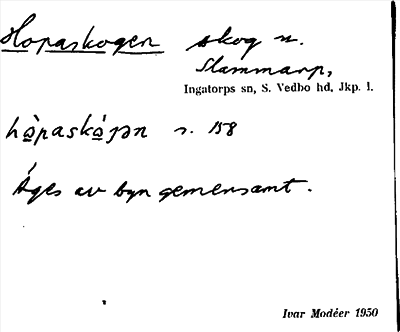 Hopaskogen skog n.
Slammarp,
Ingatorps sn, S. Vedbo hd, Jkp. l.
hò̱paskò̱gən s. 158
Äges av byn gemensamt.
Ivar Modéer 1950